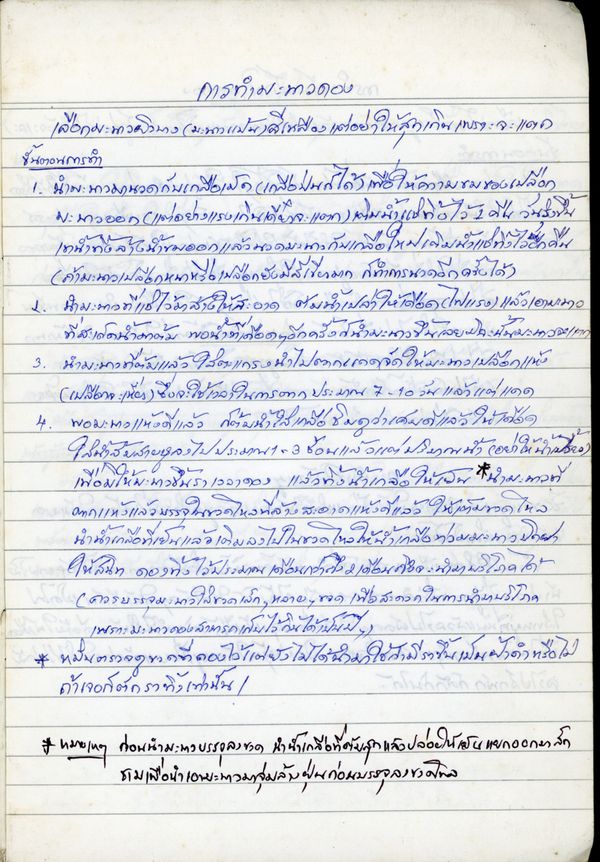 การทำมะนาวดอง
เลือกมะนาวผิวบาง (มะนาวแป้น) สีเหลือง แต่อย่าให้สุกเกินเพราะจะแตก
ขั้นตอนการทำ
1. นำมะนาวมานวดกับเกลือเม็ด (เกลือป่นก็ได้) เพื่อให้ความขมของเปลือก
มะนาวออก (แต่อย่าแรงเกินเดี๋ยวจะแตก) เติมน้ำแช่ทิ้งไว้ 1 คืน วันรุ่งขึ้น
เทน้ำทิ้งล้างน้ำขมออกแล้วนวดมะนาวกับเกลือใหม่เติมน้ำแช่ทิ้งไว้อีกคืน
(ถ้ามะนาวเปลือกหนาหรือเปลือกยังมีสีเขียวมาก ก็ทำการนวดอีกครั้งได้)
2. นำมะนาวที่แช่ไว้มาล้างให้สะอาด ต้มน้ำเปล่าให้เดือด (ไฟแรง) แล้วเอามะนาว
ที่สะเด็ดน้ำมาต้ม พอน้ำที่เดือดๆอีกครั้งก็นำมะนาวขึ้นเลยมิฉะนั้นมะนาวจะแตก
3. นำมะนาวที่ต้มแล้ว ใส่ตะแกรงนำไปตากแดดจัดให้มะนาวเปลือกแห้ง
(เปลือกจะเหี่ยว) ซึ่งจะใช้เวลาในการตาก ประมาณ 7-10 วัน แล้วแต่แดด
4. พอมะนาวแห้งดีแล้ว ก็ต้มน้ำใส่เกลือชิมดูว่าเค็มดีแล้วให้เดือด
ใส่น้ำส้มสายชูลงไปประมาณ 1-3 ช้อนแล้วแต่ปริมาณน้ำ (อย่าให้น้ำเปรี้ยว)
เพื่อมิให้มะนาวขึ้นราเวลาดอง แล้วทิ้งน้ำเกลือให้เย็น * นำมะนาวที่
ตากแห้งแล้วบรรจุในขวดโหลที่ล้างสะอาดแห้งดีแล้ว ให้เต็มขวดโหล
นำน้ำเกลือที่เย็นแล้วเติมลงไปในขวดโหลให้น้ำเกลือท่วมมะนาวปิดฝา
ให้สนิท ดองทิ้งไว้ประมาณเดือนกว่าถึง 2 เดือนก็จะนำมาบริโภคได้
(ควรบรรจุมะนาวใส่ขวดเล็ก, หลายๆขวด เพื่อสะดวกในการนำมาบริโภค
เพราะมะนาวดองสามารถเก็บไว้กินได้เป็นปี ๆ)
* หมั่นตรวจดูขวดที่ดองไว้แต่ยังไม่ได้นำมาใช้ว่ามีราขึ้นเป็นฝ้าดำหรือไม่
ถ้าเจอก็ตักราทิ้งเท่านั้น /
* หมายเหตุ ก่อนนำมะนาวบรรจุลงขวด นำน้ำเกลือที่ต้มสุกแล้วปล่อยให้เย็นแยกออกมาสัก
ชามเพื่อนำเอามะนาวมาจุ่มล้างฝุ่นก่อนบรรจุลงขวดโหล